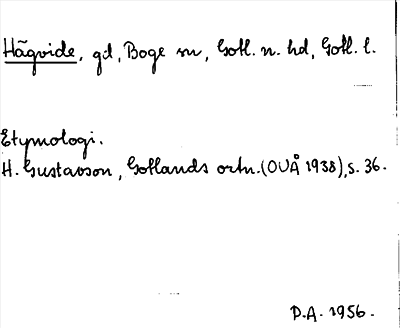 Hägvide, gd, Boge sn, Gotl. n. hd, Gotl. l.
Etymologi.
H. Gustavson, Gotlands ortn. (OUÅ 1938), s. 36.
D.A. 1956.